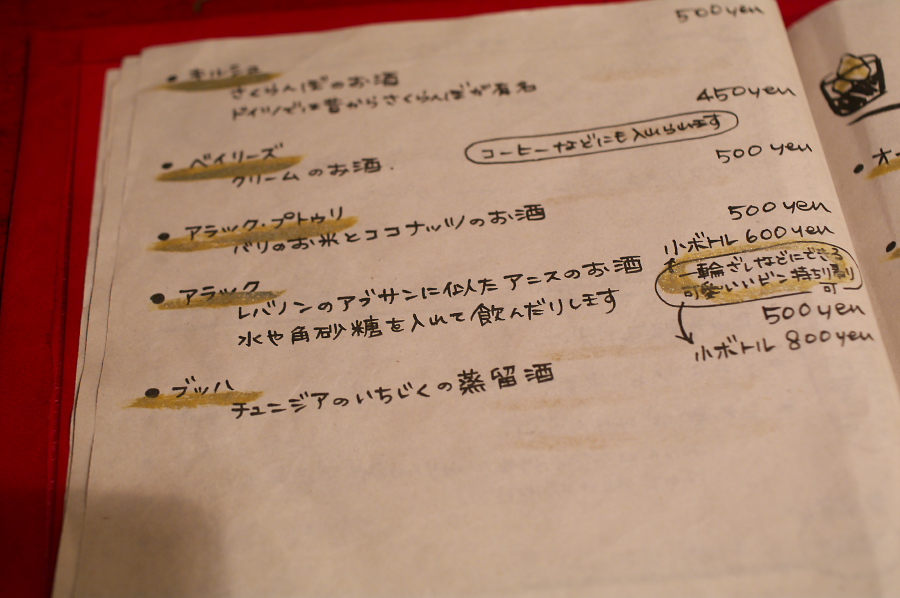 500yen
・キルシュ
さくらんぼのお酒
ドイツでは昔からさくらんぼが有名
450yen
・ベイリーズ
クリームのお酒.
コーヒーなどにも入れられます
500yen
・アラック・プトゥリ
バリのお米とココナッツのお酒
500yen
小ボトル 600yen
・アラック
レバノンのアブサンに似たアニスのお酒
水や角砂糖を入れて飲んだりします
一輪ざしなどにできる
可愛いいビン 持ち帰り
可
500yen
小ボトル 800yen
・ブッハ
チュニジアのいちじくの蒸留酒
・オー